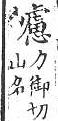 力御切
山名